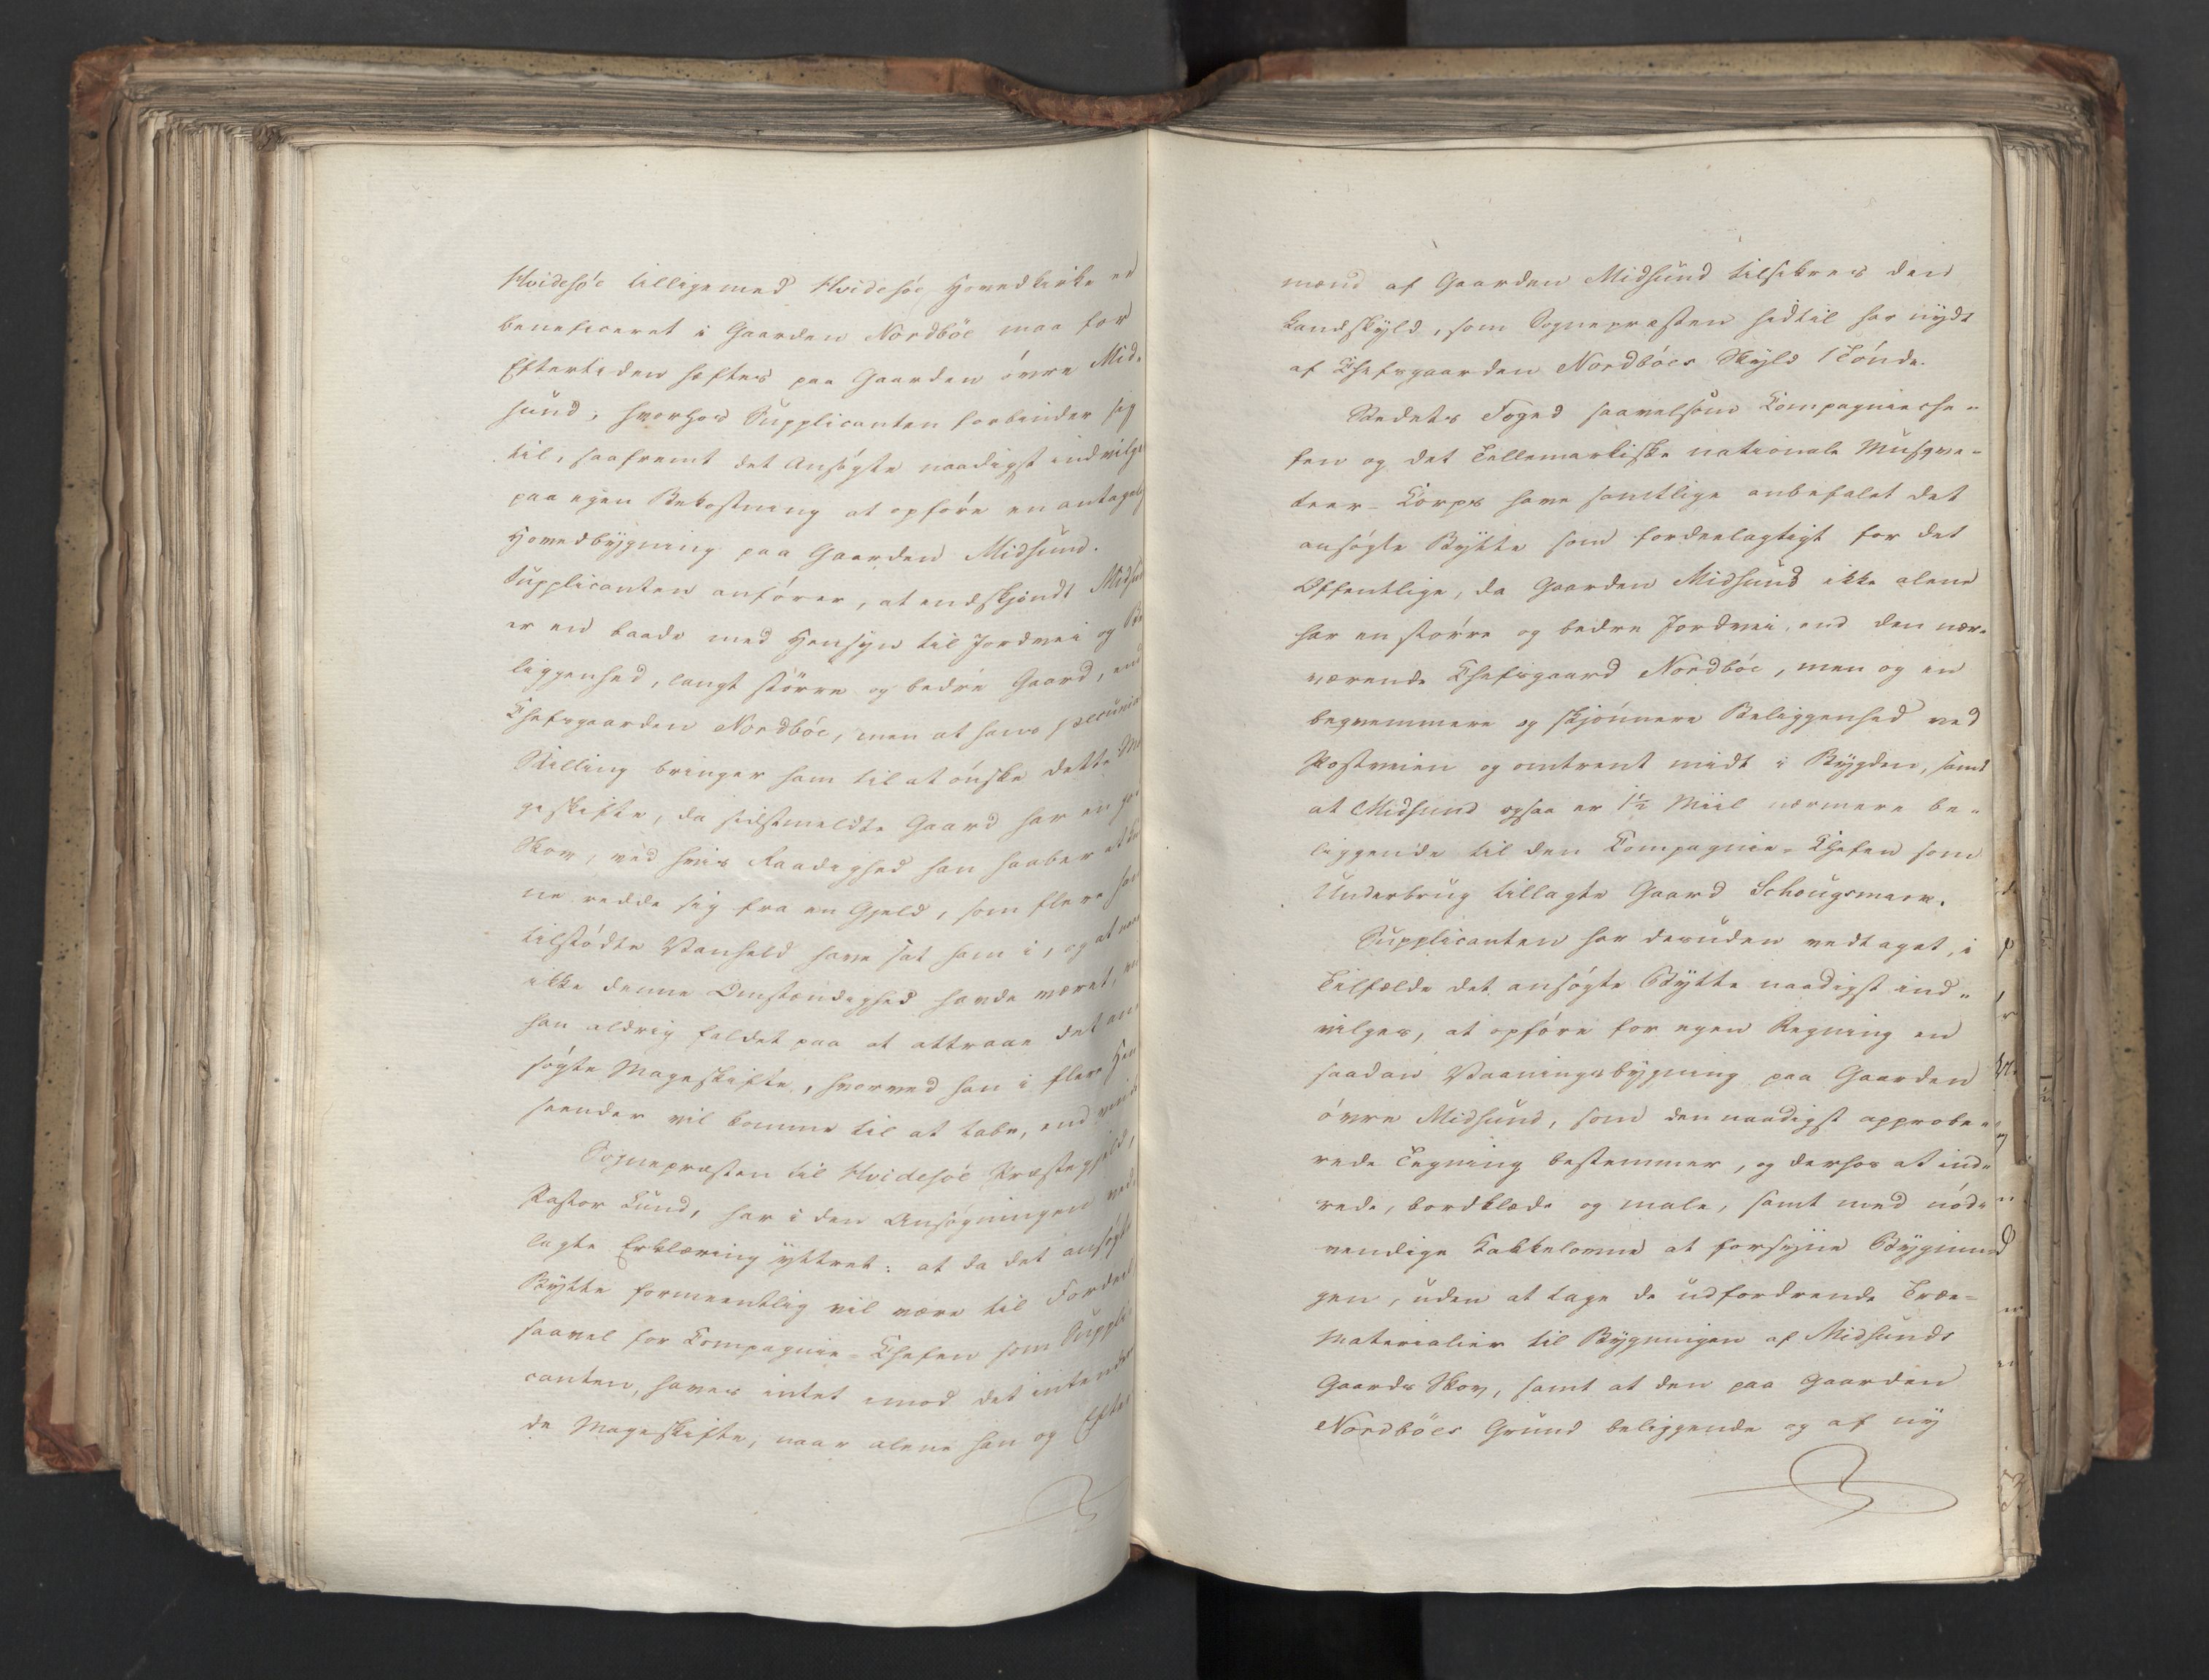 Hvidesøe tilligemed Hvidesøe Hovedkirke er
beneficeret i Gaarden Nordbøe maa for
Eftertiden hæftes paa Gaarden øvre Mid-
sund, hvorhos Supplicanten forbinder sig
til, saafremt det Ansøgte naadigst indvilges
paa egen Bekostning at opføre en antagelig
Hovedbygning paa Gaarden Midsund.
Supplicanten anfører, at endskjøndt Midsund
er en baade med Hensyn til Jordvei og Be
liggenhed, langt større og bedre Gaard, end
Chefsgaarden Nordbøe, men at hans pecuniaire
Stilling bringer ham til at ønske dette Ma
geskifte, da sidstmeldte Gaard har en god
Skov, ved hvis Raadighed han haaber at kun
ne redde sig fra en Gjeld, som flere ham
tilstødte Vanheld have sat ham i, og at var
ikke denne Omstændighed havde været, var
han aldrig faldet paa at attraae det an
søgte Mageskifte, hvorved han i flere Hen
seender vil komme til at tabe, end vinde.
Sognepræsten til Hvidesøe Præstegjeld,
Pastor Lund, har i den Ansøgningen ved
lagte Erklæring yttret: at da det ansøgte
Bytte formeentlig vil være til Fordeel
saavel for Compagnie-Chefen som Suppli
canten, haves intet imod det intendere
de Mageskifte, naar alene han og Efter
mænd af Gaarden Midsund tilsikres den
Landskyld, som Sognepræsten hidtil har nydt
af Chefsgaarden Nordbøes Skyld 1 Tønde.
Stedets Foged saavelsom Compagnieche-
fen og det Tellemarkiske nationale Musqve-
teer-Corps have samtlige anbefalet det
ansøgte Bytte som fordeelagtigt for det
Offentlige, da Gaarden Midsund ikke alene
har en større og bedre Jordvei, end den nær-
værende Chefsgaard Nordbøe, men og en
beqvemmere og skjønnere Beliggenhed ved
Postveien og omtrent midt i Bygden, samt
at Midsund ogsaa er 1½ Miil nærmere be-
liggende til den Compagnie-Chefen som
Underbrug tillagte Gaard Schougsmarr.
Supplicanten har desuden vedtaget, i
Tilfælde det ansøgte Bytte naadigst ind-
vilges, at opføre for egen Regning en
saadan Vaaningsbygning paa Gaarden
øvre Midsund, som den naadigst approbe-
rede Tegning bestemmer, og derhos at ind-
rede, bordklæde og male, samt med nød-
vendige Kakkelovne at forsyne Bygnin
gen, uden at tage de udfordrende Træe-
Materialier til Bygningen af Midsunds
Gaards Skov, samt at den paa Gaarden
Nordbøes Grund beliggende og af ny